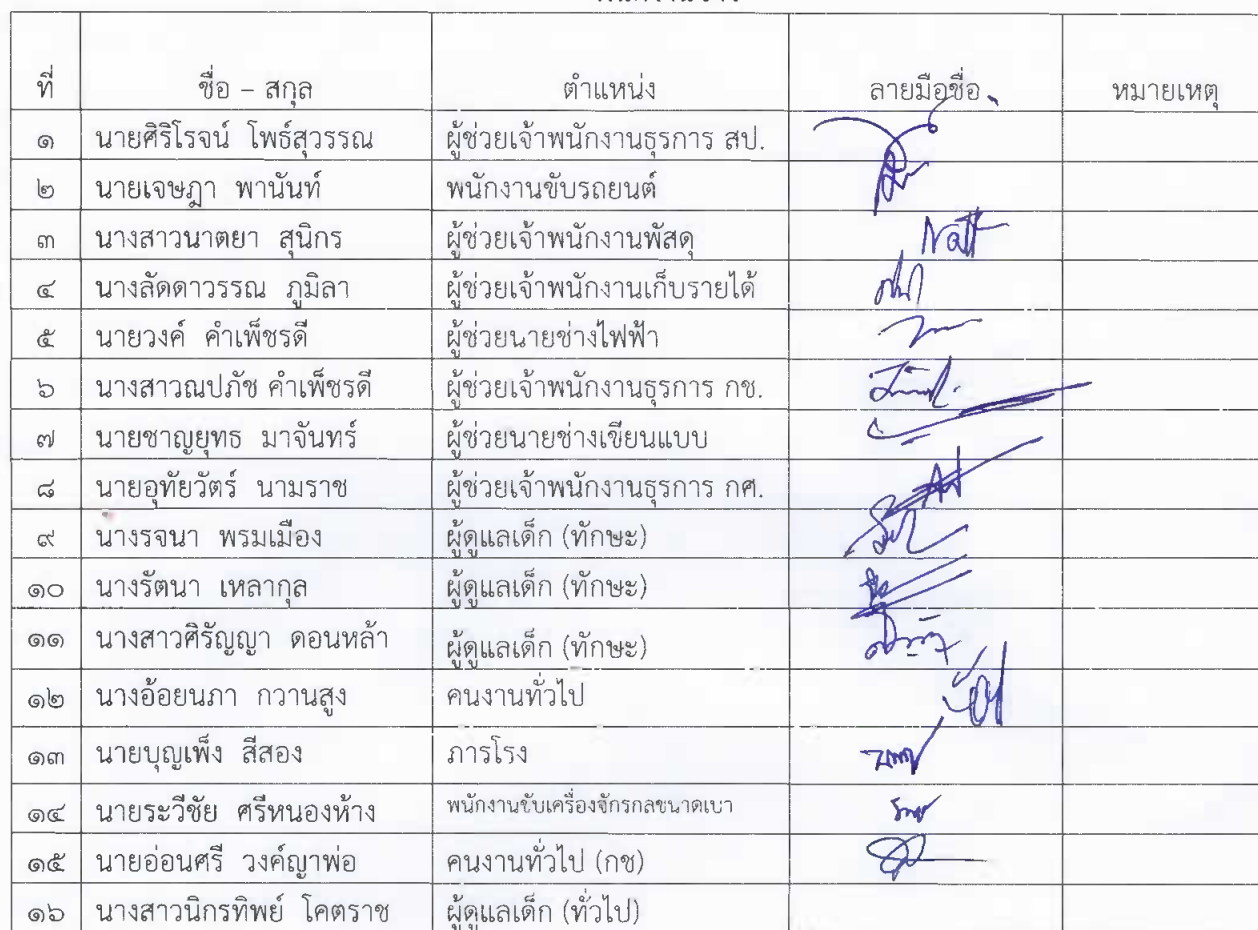 ที่ ชื่อ – สกุล ตำแหน่ง ลายมือชื่อ หมายเหตุ
๑ นายศิริโรจน์ โพธ์สุวรรณ ผู้ช่วยเจ้าพนักงานธุรการ สป.
๒ นายเจษฎา พานันท์ พนักงานขับรถยนต์
๓ นางสาวนาตยา สุนิกร ผู้ช่วยเจ้าพนักงานพัสดุ Natt
๔ นางลัดดาวรรณ ภูมิลา ผู้ช่วยเจ้าพนักงานเก็บรายได้
๕ นายวงค์ คำเพ็ชรดี ผู้ช่วยนายช่างไฟฟ้า
๖ นางสาวณปภัช คำเพ็ชรดี ผู้ช่วยเจ้าพนักงานธุรการ กช.
๗ นายชาญยุทธ มาจันทร์ ผู้ช่วยนายช่างเขียนแบบ
๘ นายอุทัยวัตร์ นามราช ผู้ช่วยเจ้าพนักงานธุรการ กศ.
๙ นางรจนา พรมเมือง ผู้ดูแลเด็ก (ทักษะ)
๑๐ นางรัตนา เหลากุล ผู้ดูแลเด็ก (ทักษะ)
๑๑ นางสาวศิรัญญา ดอนหล้า ผู้ดูแลเด็ก (ทักษะ)
๑๒ นางอ้อยนภา กวานสูง คนงานทั่วไป
๑๓ นายบุญเพ็ง สีสอง ภารโรง
๑๔ นายระวีชัย ศรีหนองห้าง พนักงานขับเครื่องจักรกลขนาดเบา
๑๕ นายอ่อนศรี วงค์ญาพ่อ คนงานทั่วไป (กช)
๑๖ นางสาวนิกรทิพย์ โคตราช ผู้ดูแลเด็ก (ทั่วไป)